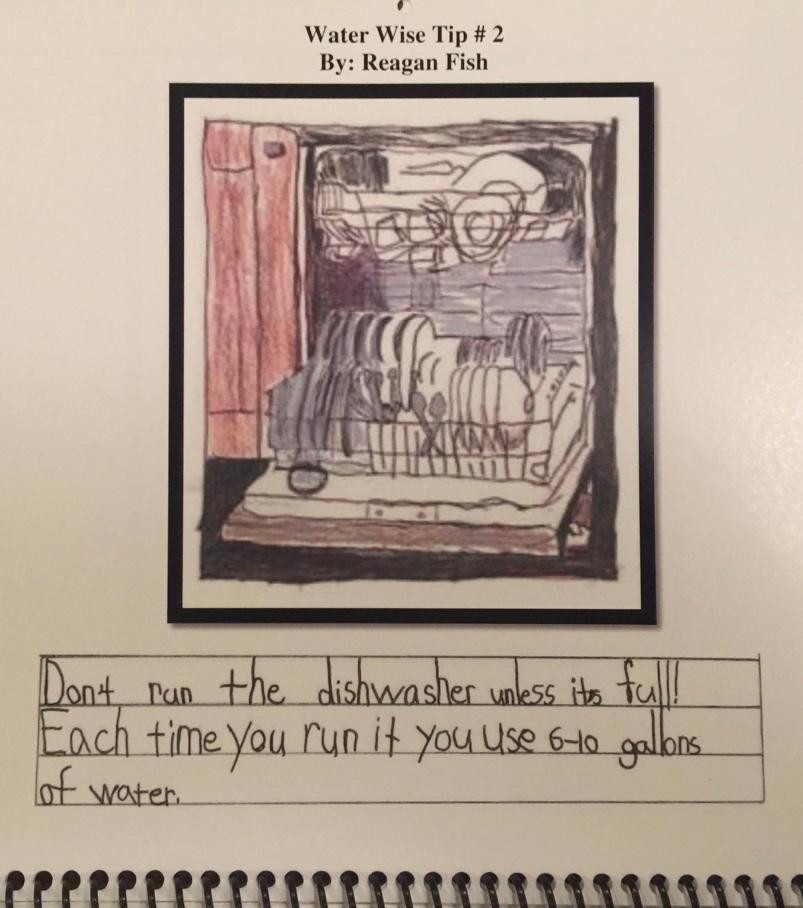 Water Wise Tip # 2
By: Reagan Fish
Don't run the dishwasher unless its full!
Each time you run it you use 6-10 gallons
of water.